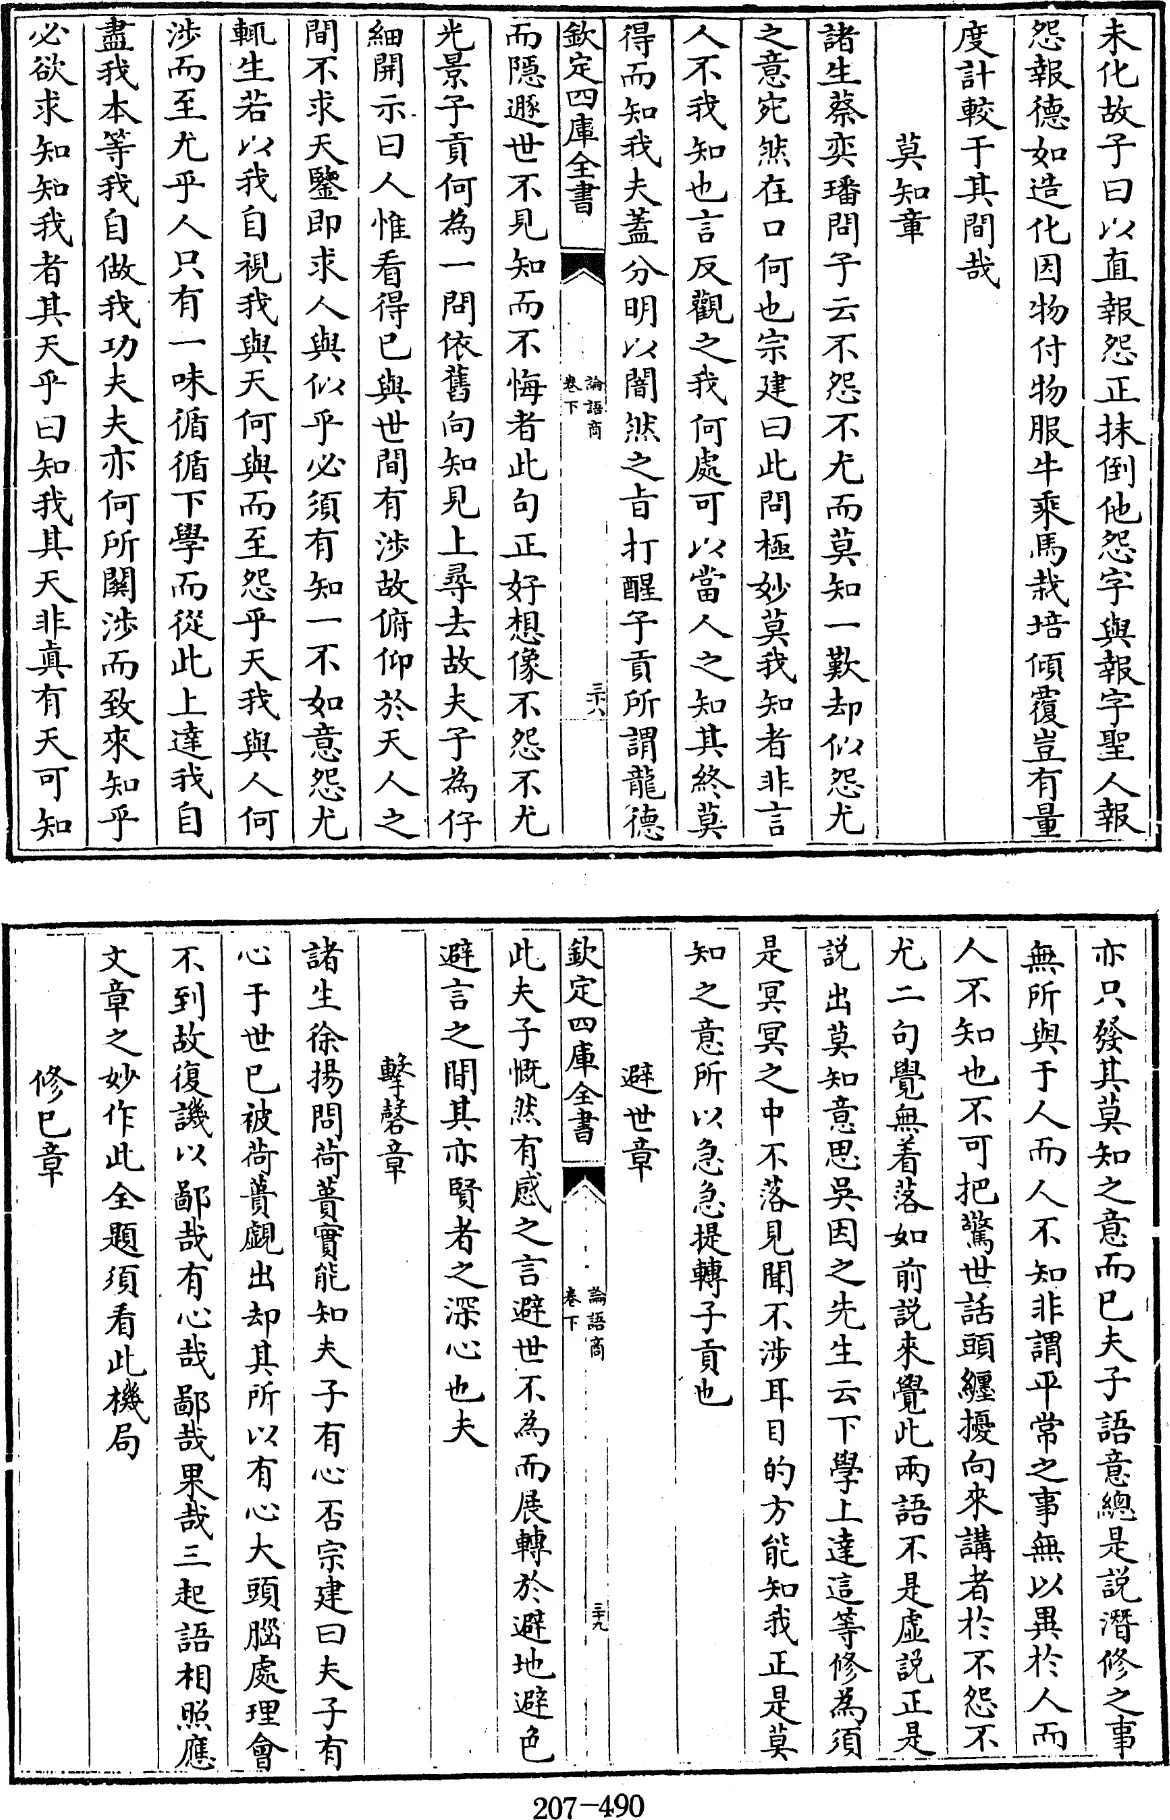 未化故子曰以直報怨正抹倒他怨字與報字聖人報
怨報德如造化因物付物服牛乘馬栽培傾覆豈有量
度計較于其間哉
莫知章
諸生蔡奕璠問子云不怨不尤而莫知一歎却似怨尤
之意宛然在口何也宗建曰此問極妙莫我知者非言
人不我知也言反觀之我何處可以當人之知其終莫
得而知我夫蓋分明以闇然之㫖打醒子貢所謂龍德
欽定四庫全書
論語商
卷下
三十八
而隱遯世不見知而不悔者此句正好想像不怨不尤
光景子貢何為一問依舊向知見上尋去故夫子為仔
細開示曰人惟看得已與世間有涉故俯仰於天人之
間不求天鑒即求人與似乎必須有知一不如意怨尤
輒生若以我自視我與天何與而至怨乎天我與人何
涉而至尤乎人只有一味循循下學而從此上達我自
盡我本等我自做我功夫夫亦何所闗涉而致來知乎
必欲求知知我者其天乎曰知我其天非真有天可知
亦只發其莫知之意而已夫子語意總是説潛修之事
無所與于人而人不知非謂平常之事無以異於人而
人不知也不可把驚世話頭纏擾向來講者於不怨不
尤二句覺無着落如前説來覺此兩語不是虛説正是
説出莫知意思吳因之先生云下學上達這等修為須
是冥冥之中不落見聞不涉耳目的方能知我正是莫
知之意所以急急提轉子貢也
避世章
欽定四庫全書
論語商
卷下
三十九
此夫子慨然有感之言避世不為而展轉於避地避色
避言之間其亦賢者之深心也夫
擊磬章
諸生徐揚問荷蕢實能知夫子有心否宗建曰夫子有
心于世已被荷蕢覷出却其所以有心大頭腦處理會
不到故復譏以鄙哉有心哉鄙哉果哉三起語相照應
文章之妙作此全題須看此機局
修已章
207-490